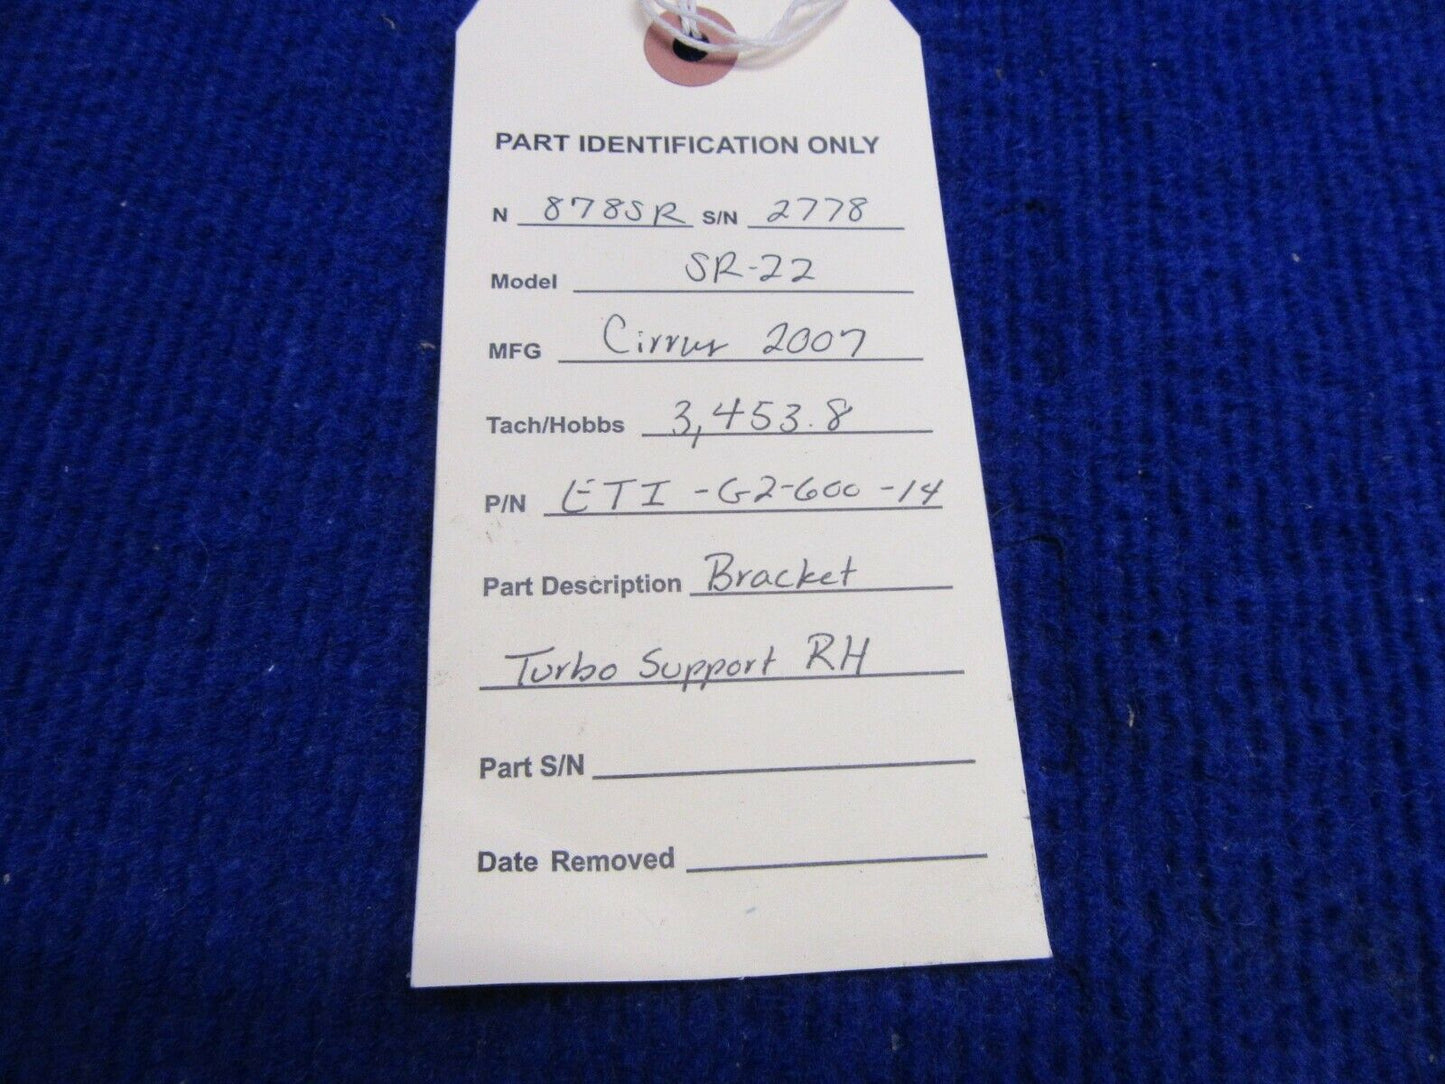 PART IDENTIFICATION ONLY
N 878SR S/N 2778
Model SR-22
MFG Cirrus 2007
Tach/Hobbs 3,453.8
P/N ETI -G2-600 -14
Part Description Bracket
Turbo Support RH
Part S/N
Date Removed